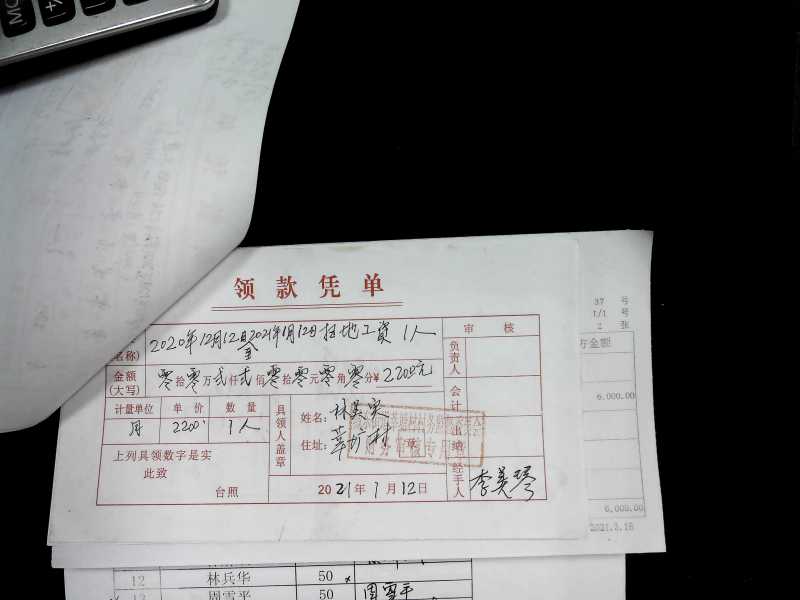 领款凭单
名称)
2020年12月12日至2021年1月12日扫地工资 1人
审 核
负责人
金额(大写) 零拾零万弍仟弍佰零拾零元零角零分¥2200元
会计
计量单位 单价 数量
月 2200 1人
具领人盖章
姓名:
住址:
财务审核专用章
出纳
上列具领数字是实
此致
台照
2021年1月12日
经手人
李美琴
37 号
1/1 号
2 张
方金额
6,000.00
6,000.00
2021.3.18
12 林兵华 50
13 周雪平 50 周雪平